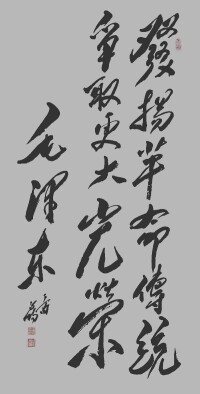 發揚革命傳統
爭取更大光榮
毛澤東